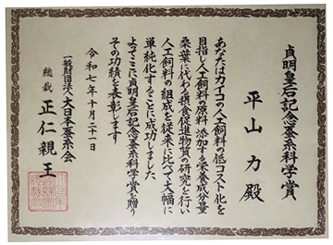 貞明皇后記念蚕糸科学賞
平山 力 殿
あなたはカイコの人工飼料の低コスト化を
目指し人工飼料の原料 添加する栄養成分量
桑葉に代わる摂食促進物質の研究を行い
人工飼料の組成を従来に比べて大幅に
単純化することに成功しました
よってここに貞明皇后記念蚕糸科学賞を贈り
その功績を表彰します
令和七年十月二十一日
一般財団法人大日本蚕糸会
総裁 正仁親王